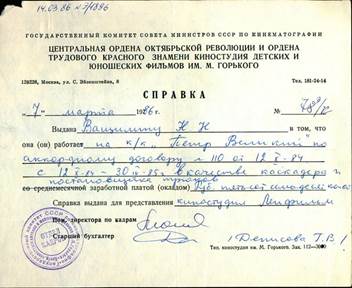 14.03.86 № 7/1886
ГОСУДАРСТВЕННЫЙ КОМИТЕТ СОВЕТА МИНИСТРОВ СССР ПО КИНЕМАТОГРАФИИ
ЦЕНТРАЛЬНАЯ ОРДЕНА ОКТЯБРЬСКОЙ РЕВОЛЮЦИИ И ОРДЕНА
ТРУДОВОГО КРАСНОГО ЗНАМЕНИ КИНОСТУДИЯ ДЕТСКИХ И
ЮНОШЕСКИХ ФИЛЬМОВ ИМ. М. ГОРЬКОГО
Москва, ул. С. Эйзенштейна, 8 Тел. 181-24-14
СПРАВКА
"7" марта 1986 г. №
Выдана Н Н в том, что
она (он) работает на к/к „Петр Великий" по
аккордному договору № 110 от 12 X - 84
с 12 X - 84 - 30 85 г. в качестве каскадера
постановщика трюков
со среднемесячной заработной платой (окладом)
Справка выдана для представления киностудия Ленфильм
Пом. директора по кадрам
Старший бухгалтер (Денисова Т.В)
Тел. киностудии им. М. Горького. Зак.